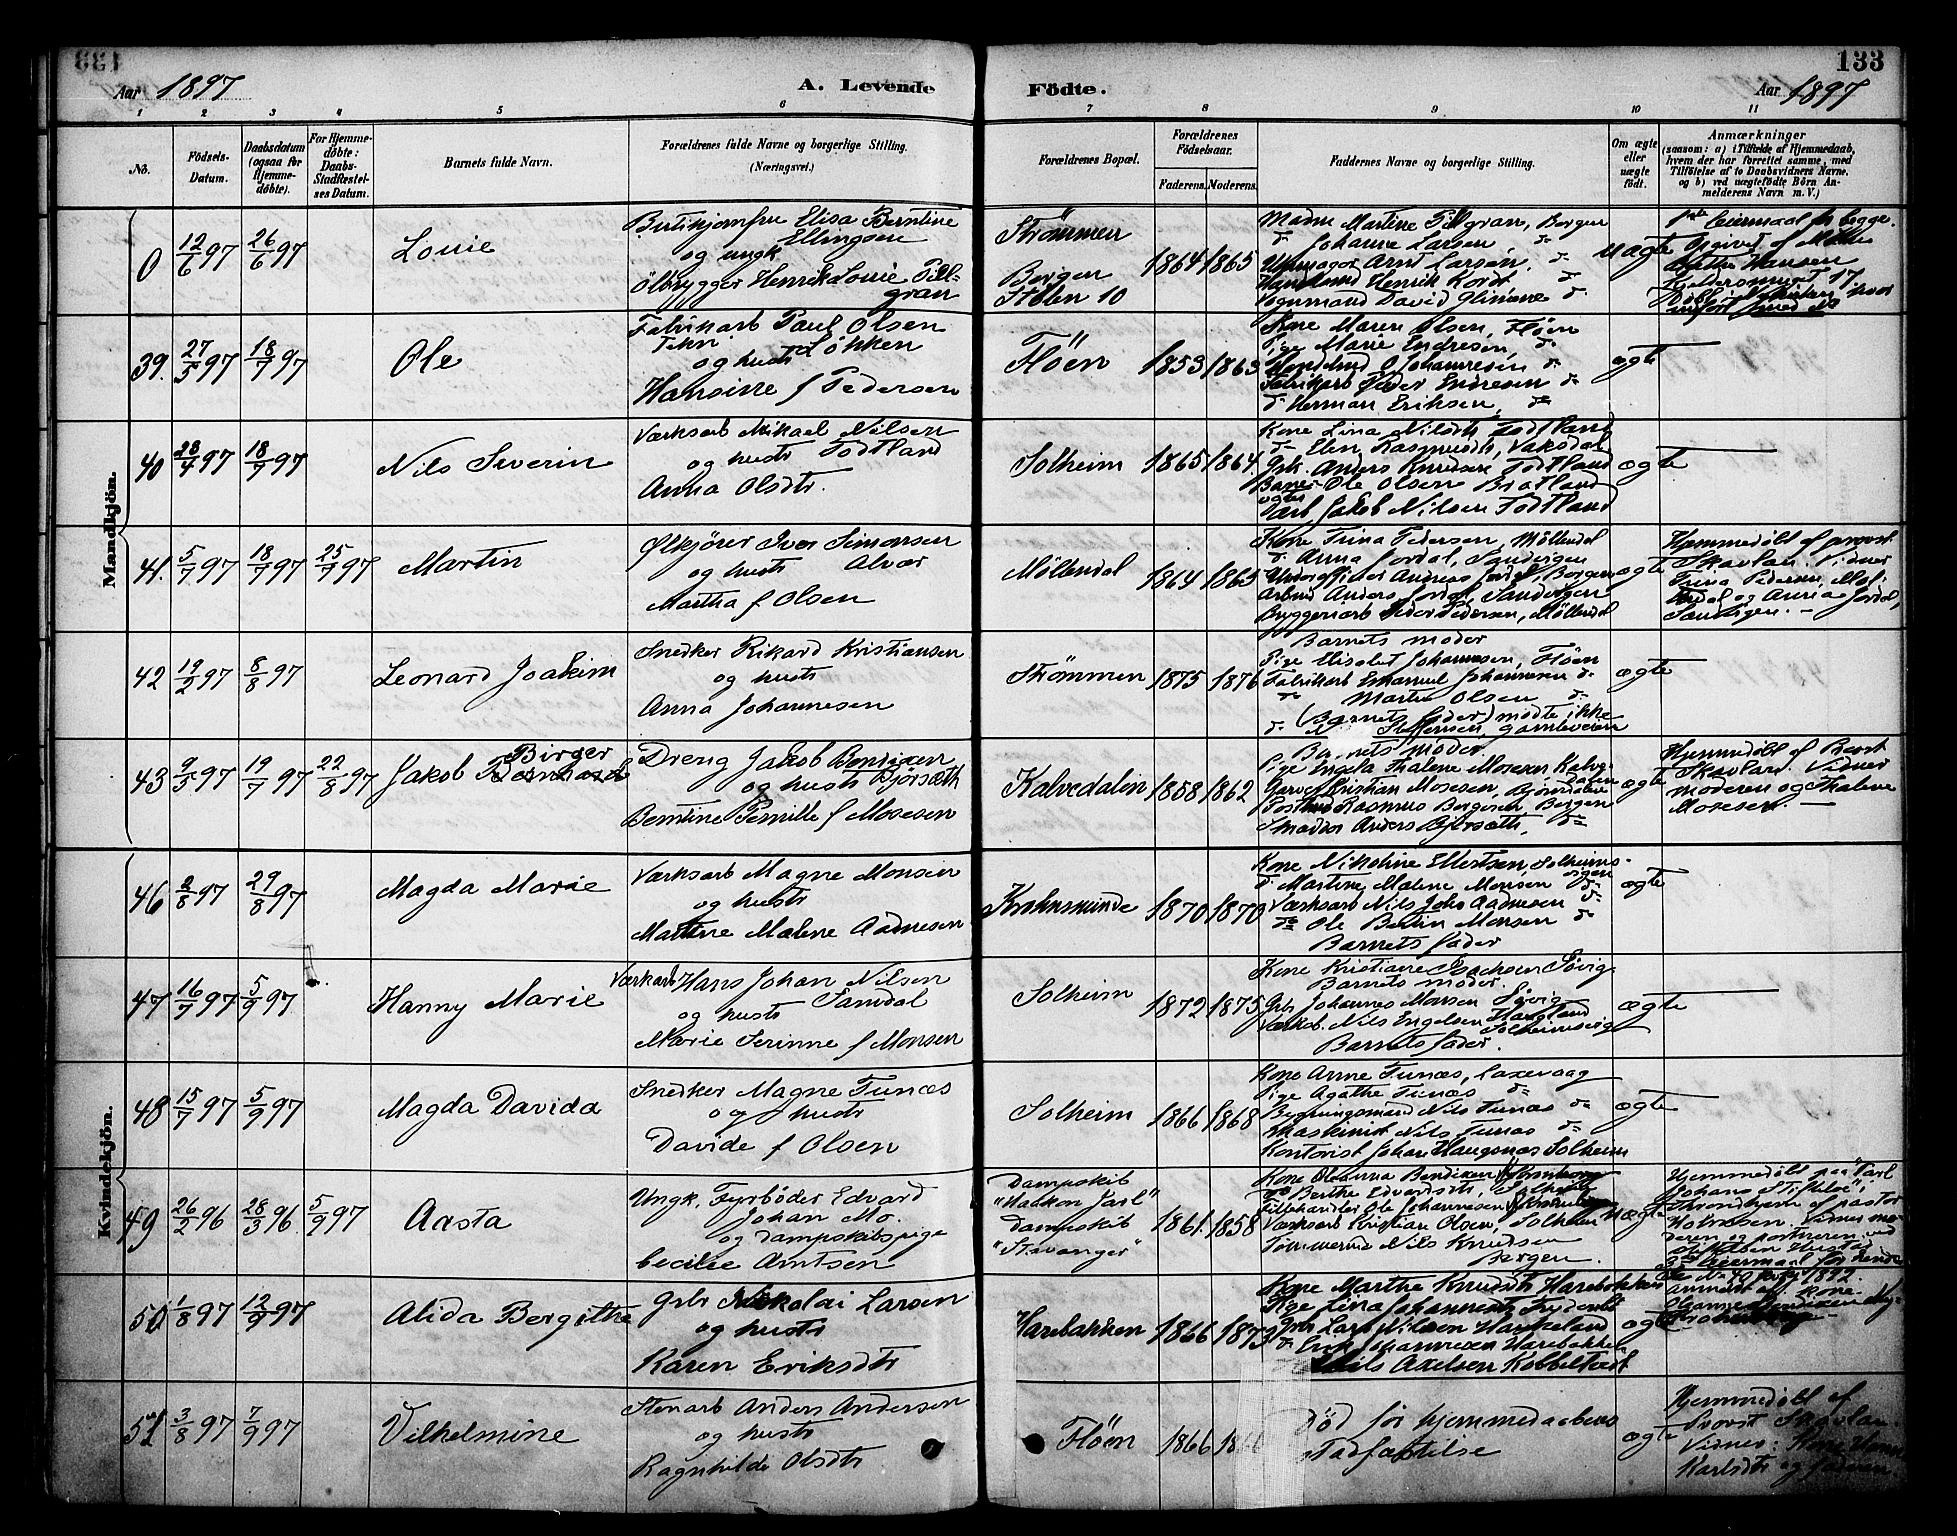 133
Aar 1897
A. Levende Födte.
Aar 1897
1 2 3 4 5 6 7 8 9 10 11
No.
Födsels-
Datum.
Daabsdatum
(ogsaa for
Hjemme-
döbte).
For Hjemme-
döbte:
Daabs-
Stadfæstel-
ses Datum.
Barnets fulde Navn.
Forældrenes fulde Navne og borgerlige Stilling.
(Næringsvei.)
Forældrenes Bopæl.
Forældrenes
Födselsaar.
Faderens. Moderens.
Faddernes Navne og borgerlige Stilling.
Om ægte
eller
uægte
födt.
Anmærkninger
(saasom: a) i Tilfælde af Hjemmedaab,
hvem der har forrettet samme, med
Tilföielse af to Daabsvidners Navne,
og b) ved uægtefödte Börn An-
melderens Navn m. V.)
Mandkjön.
0 12/6 97 26/6 97
Louie
Elisa Berntine
Ellingsen
og ungk
Ölbrygger Henrik Louie Pil-
gran
Strömmen
Bergen
Stölen 10
1864 1865
Madm Martine Pilgran, Bergen
do Johanne Larsen, do
Arnt Larsen, do
Henrik Kordt
David do
uægte
39. 27/5 97 18/7 97
Ole
Fabrikarb Paul Olsen
Løkken
og hustr
Hansine f Pedersen
Flöen
1853 1863
Kone Maren Olsen, Flöen
Pige Marie Endresen, do
Johannesen do
Fabrikarb Peder Endresen do
do Herman Eriksen, do
ægte
40 28/4 97 18/7 97
Nils Severin
Værksarb Mikael Nilsen
og hustr Todtland
Anna Olsdtr.
Solheim
1865 1864
Kone Lina Nilsdtr Todtland
do Elen Rasmusdtr, Vaksdal
Grbr. Anders Knudsen Todtland
Ole Olsen Bratland
Jakob Nilsen Todtland
ægte
41. 5/7 97 18/7 97 25/7 97
Martin
Ølkjörer Iver Simonsen
og hustr Alvær
Martha f Olsen
Möllendal
1864 1865
Kone Trina Pedersen, Möllendal
do Anna Jordal, Sandvigen
Underofficier Andreas Jordal, Bergen
Arbmd Anders Jordal Sandvigen
Bryggeriarb Peder Pedersen, Möllendal
ægte
Hjemmedöbt af provst
Skavlan. Vidner
Trina Pedersen, Möl-
lendal og Anna Jordal,
Sandvigen. —
42 19/2 97 8/8 97
Leonard Joakim
Snedker Rikard Kristiansen
og hustr
Anna Johannesen
Strömmen
1875 1876
Barnets moder
Pige Elisabet Johannesen, Flöen
Fabrikarb Emanuel Johannesen do
do Martin Olsen do
(Barnets fader) mödte ikke
do Steffensen, gamleveien
ægte
43 9/5 97 19/7 97 22/8 97
Jakob Birger
Dreng Jakob Bendixen
og hustr Bjørsæth
Berntine Pernille f Mosesen
Kalvedalen
1858 1862
Barnets moder
Pige Engela Thalene Mosesen Kalve-
dalen
Garver Kristian Mosesen, Björndalen
Rasmus Bergesen Bergen
Anders Bjørsæth, do
ægte
Hjemmedöbt af Provst
Skavlan. Vidner
moderen og Thalene
Mosesen —
Kvindekjön.
46 2/8 97 29/8 97
Magda Marie
Værksarb Magne Monsen
og hustr
Martine Malene Aadnesen
Krohnsminde
1870 1870
Kone Nikoline Ellertsen, Solheims-
vigen
do Martine Malene Monsen do
Værksarb Nils Joh Aadnesen do
do Ole Bertin Monsen do
Barnets fader
ægte
47 16/7 97 5/9 97
Hanny Marie
Værksarb Hans Johan Nilsen
og hustr Samdal
Marie Serinne f Monsen
Solheim
1872 1875
Kone Kristiane Isachsen Sövig
Barnets moder.
Grbr Johannes Monsen Sövig
Værksb. Nils Engelsen Haugland
Solheimsvig
Barnets fader.
ægte
48 15/7 97 5/9 97
Magda Davida
Snedker Magne Tunæs
og hustr
Davide f Olsen
Solheim
1866 1868
Kone Anne Tunæs, Laxevaag
Pige Agathe Tunæs do
Bygningsmand Nils Tunæs do
Maskinist Nils Tunæs do
Kontorist Johan Haugsnæs Solheim
ægte
49 26/2 96 28/3 96 5/9 97
Aasta
Ungk. Fyrböder Edvard
Johan Mo.
og Dampskibspige
Cecilie Arntsen
Dampskib
"Haakon Jarl"
Dampskib
"Stavanger"
1861. 1858
Kone Oleanna Bendixen
Berthe Edvardsdtr,
Ole Johannesen
Værksarb Kristian Olsen, Solheim
Tømmermd Nils Knudsen
Bergen
uægte
Hjemmedöbt paa "Carl
Johans Stiftelse" i
Throndhjem af pastor
Vidner mo-
deren og portneren ved
3die leiermaal for hende
1892.
Anmeldt af kone
Oleanna Bendixen
50 1/8 97 12/9 97
Alida Bergitthe
Grbr Nikolai Larsen
og hustr
Karen Eriksdtr
Harebakken
1866 1873
Kone Marthe Knudsdtr Harebakken
Pige Lina Johannesdtr
Grbr Lars Nilsen Haukeland
do Erik Johannesen Harebakken
Nils Axelsen Kobbeltvedt
ægte
51 3/8 97 7/9 97
Vilhelmine
Stenarb Anders Andersen
og hustr
Ragnhilde Olsdtr
Flöen
1866
Död för hjemmedaabens
stadfæstelse
ægte
Hjemmedöbt af
Provst Skavlan.
Vidner: Kone
Karlsdtr og